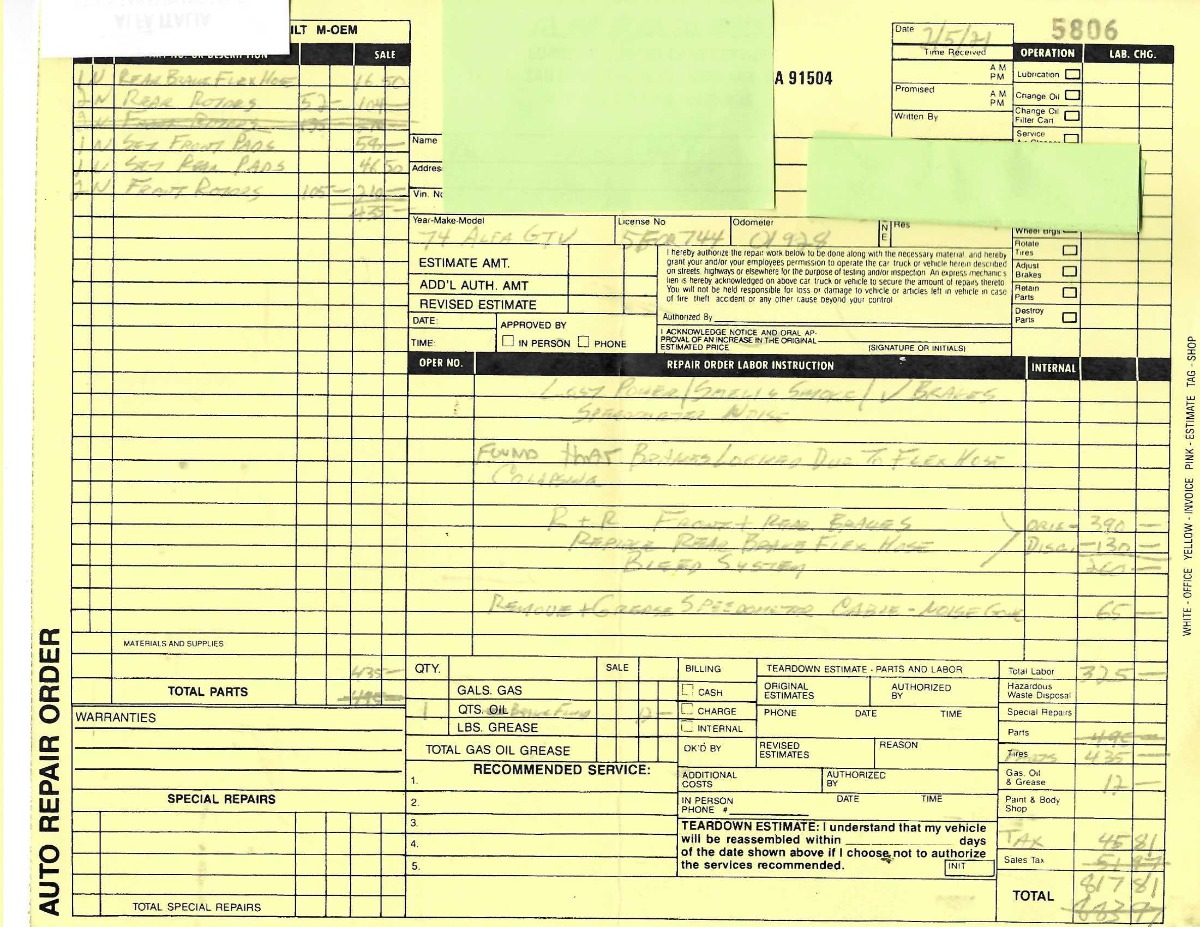 ILT M-OEM
Date 2/5/21
5806
SALE
Time Received
OPERATION LAB. CHG.
1 N REAR BRAKE FLEX HOSE 16 50
A 91504
AM
PM
Lubrication
2 N REAR ROTORS 52- 104-
Promised
AM
PM
Change Oil
2 N FRONT ROTORS 135
Written By
Change Oil
Filter Cart
1 N SET FRONT PADS 59-
Name
Service
1 N SET REAR PADS 46 50
Addres
2 N FRONT ROTORS 105- 210-
Vin. No
435-
Year-Make-Model
74 ALFA GTV
License No
Odometer
01928
N
E
Res
Wheel Brgs
Rotate
Tires
Adjust
Brakes
Retain
Parts
Destroy
Parts
ESTIMATE AMT.
ADD'L AUTH. AMT
REVISED ESTIMATE
DATE:
TIME:
APPROVED BY
IN PERSON PHONE
I hereby authorize the repair work below to be done along with the necessary material, and hereby
grant your and/or your employees permission to operate the car truck or vehicle herein described
on streets, highways or elsewhere for the purpose of testing and/or inspection An express mechanic's
lien is hereby acknowledged on above car truck or vehicle to secure the amount of repairs thereto
You will not be held responsible for loss or damage to vehicle or articles left in vehicle in case
of fire theft accident or any other cause beyond your control
Authorized By
I ACKNOWLEDGE NOTICE AND ORAL AP-
PROVAL OF AN INCREASE IN THE ORIGINAL
ESTIMATED PRICE (SIGNATURE OR INITIALS)
OPER NO. REPAIR ORDER LABOR INSTRUCTION INTERNAL
LOST POWER/SMELLS SMOKE/ √ BRAKES
SPEEDOMETER NOISE
FOUND THAT BRAKES LOCKED DUE TO FLEX HOSE
COLAPSING
R + R FRONT + REAR BRAKES ORIG- 390 -
REPLACE REAR BRAKE FLEX HOSE DISC. -130 -
BLEED SYSTEM 260 -
REMOVE + GREASE SPEEDOMETER CABLE - NOISE GONE 65 -
MATERIALS AND SUPPLIES
435-
TOTAL PARTS 495-
WARRANTIES
SPECIAL REPAIRS
TOTAL SPECIAL REPAIRS
QTY. SALE
GALS. GAS
1 QTS. OIL BRAKE FLUID 12 -
LBS. GREASE
TOTAL GAS OIL GREASE
RECOMMENDED SERVICE:
1.
2.
3.
4.
5.
BILLING
CASH
CHARGE
INTERNAL
TEARDOWN ESTIMATE - PARTS AND LABOR
ORIGINAL
ESTIMATES
AUTHORIZED
BY
PHONE DATE TIME
OK'D BY
REVISED
ESTIMATES
REASON
ADDITIONAL
COSTS
AUTHORIZED
BY
IN PERSON
PHONE #
DATE TIME
TEARDOWN ESTIMATE: I understand that my vehicle
will be reassembled within days
of the date shown above if I choose not to authorize
the services recommended.
INIT
Total Labor 325 -
Hazardous
Waste Disposal
Special Repairs
Parts 495 -
Tires PARTS 435 -
Gas, Oil
& Grease 12 -
Paint & Body
Shop
TAX 45 81
Sales Tax 51 97
TOTAL 817 81
883 97
AUTO REPAIR ORDER
WHITE - OFFICE YELLOW - INVOICE PINK - ESTIMATE TAG - SHOP